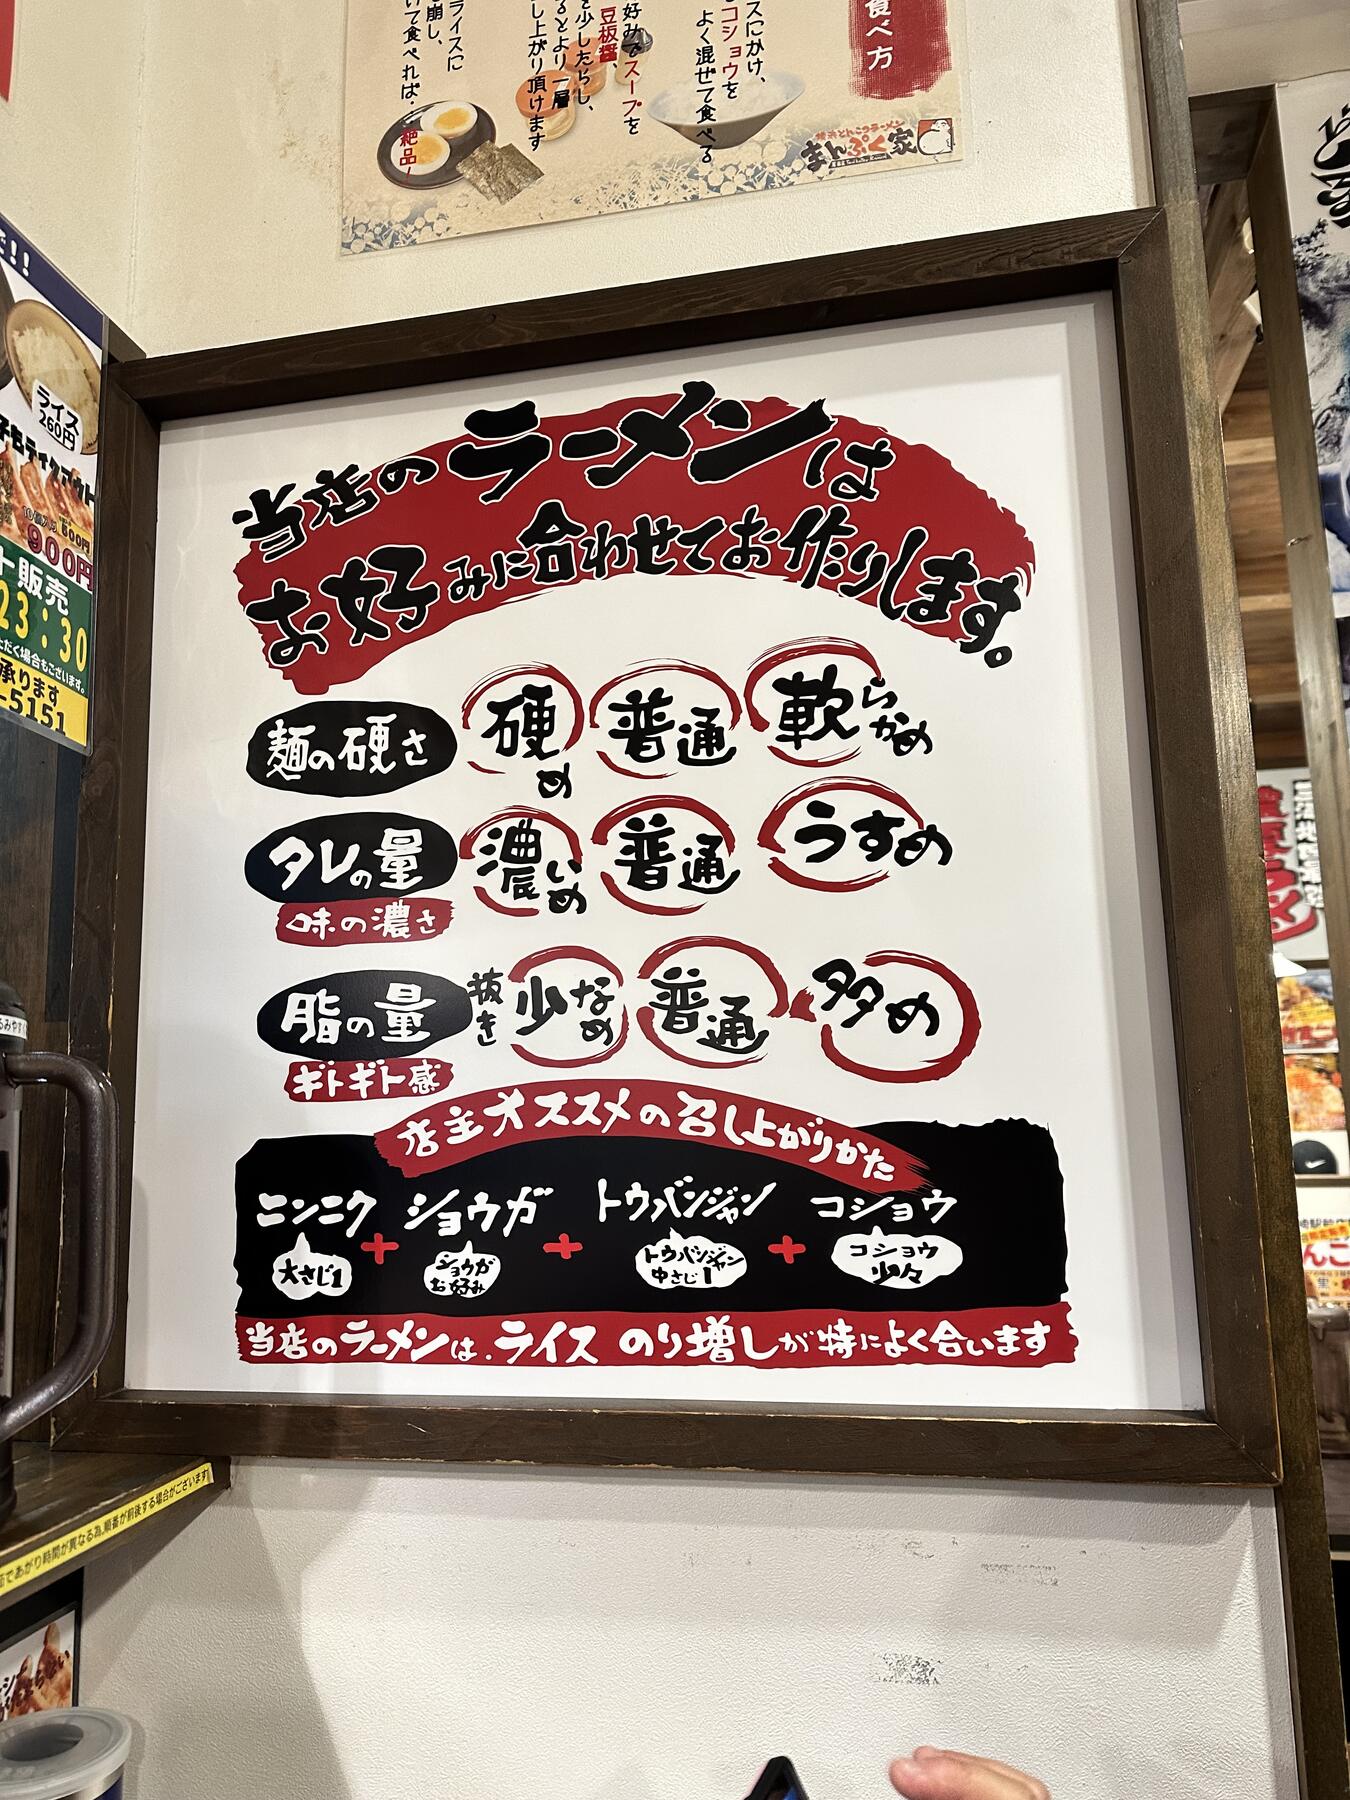 食べ方
スにかけ、
コショウを
よく混ぜて食べる
好みでスープを
豆板醤、
少したらし、
るとより一層
し上がり頂けます
ライスに
崩し、
いて食べれば・
絶品!
横浜とんこつラーメン
まんぷく家
当店のラーメンは
お好みに合わせてお作りします。
麺の硬さ 硬め 普通 軟らかめ
タレの量 濃いめ 普通 うすめ
味の濃さ
脂の量 抜き 少なめ 普通 多め
ギトギト感
店主オススメの召し上がりかた
ニンニク + ショウガ + トウバンジャン + コショウ
大さじ1 ショウガお好み トウバンジャン中さじ1 コショウ少々
当店のラーメンは、ライス のり増しが特によく合います
!!
ライス
260円
テイクアウト
600円
900円
ト販売
23:30
ただく場合もございます。
承ります
-5151
面であがり時間が異なる為、順番が前後する場合がございます